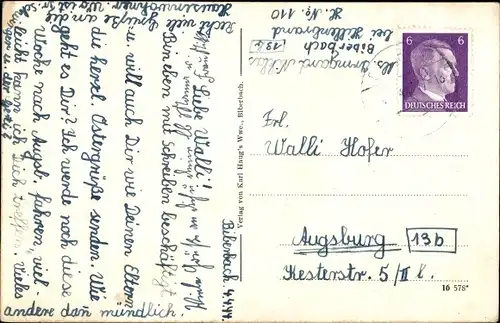 Biberbach, 4.4.44.
Liebe Walli!
Bin eben mit Schreiben beschäftigt
u. will auch Dir wie Deinen Eltern
die herzl. Ostergrüße senden. Wie
geht es Dir? Ich werde noch diese
Woche nach Augsb. fahren, viel-
leicht kann ich Dich treffen. Vieles
andere dañ mündlich.
Recht viele
Grüße an die
Hausbewohner
Abs. Irmgard
Biberbach 13b
bei Hillenbrand
H. No. 110
6 6
DEUTSCHES REICH
Verlag von Karl Haug's Wwe., Biberbach.
Frl.
Walli Hofer
Augsburg 13b
Kesterstraße 5/II l.
16 578*